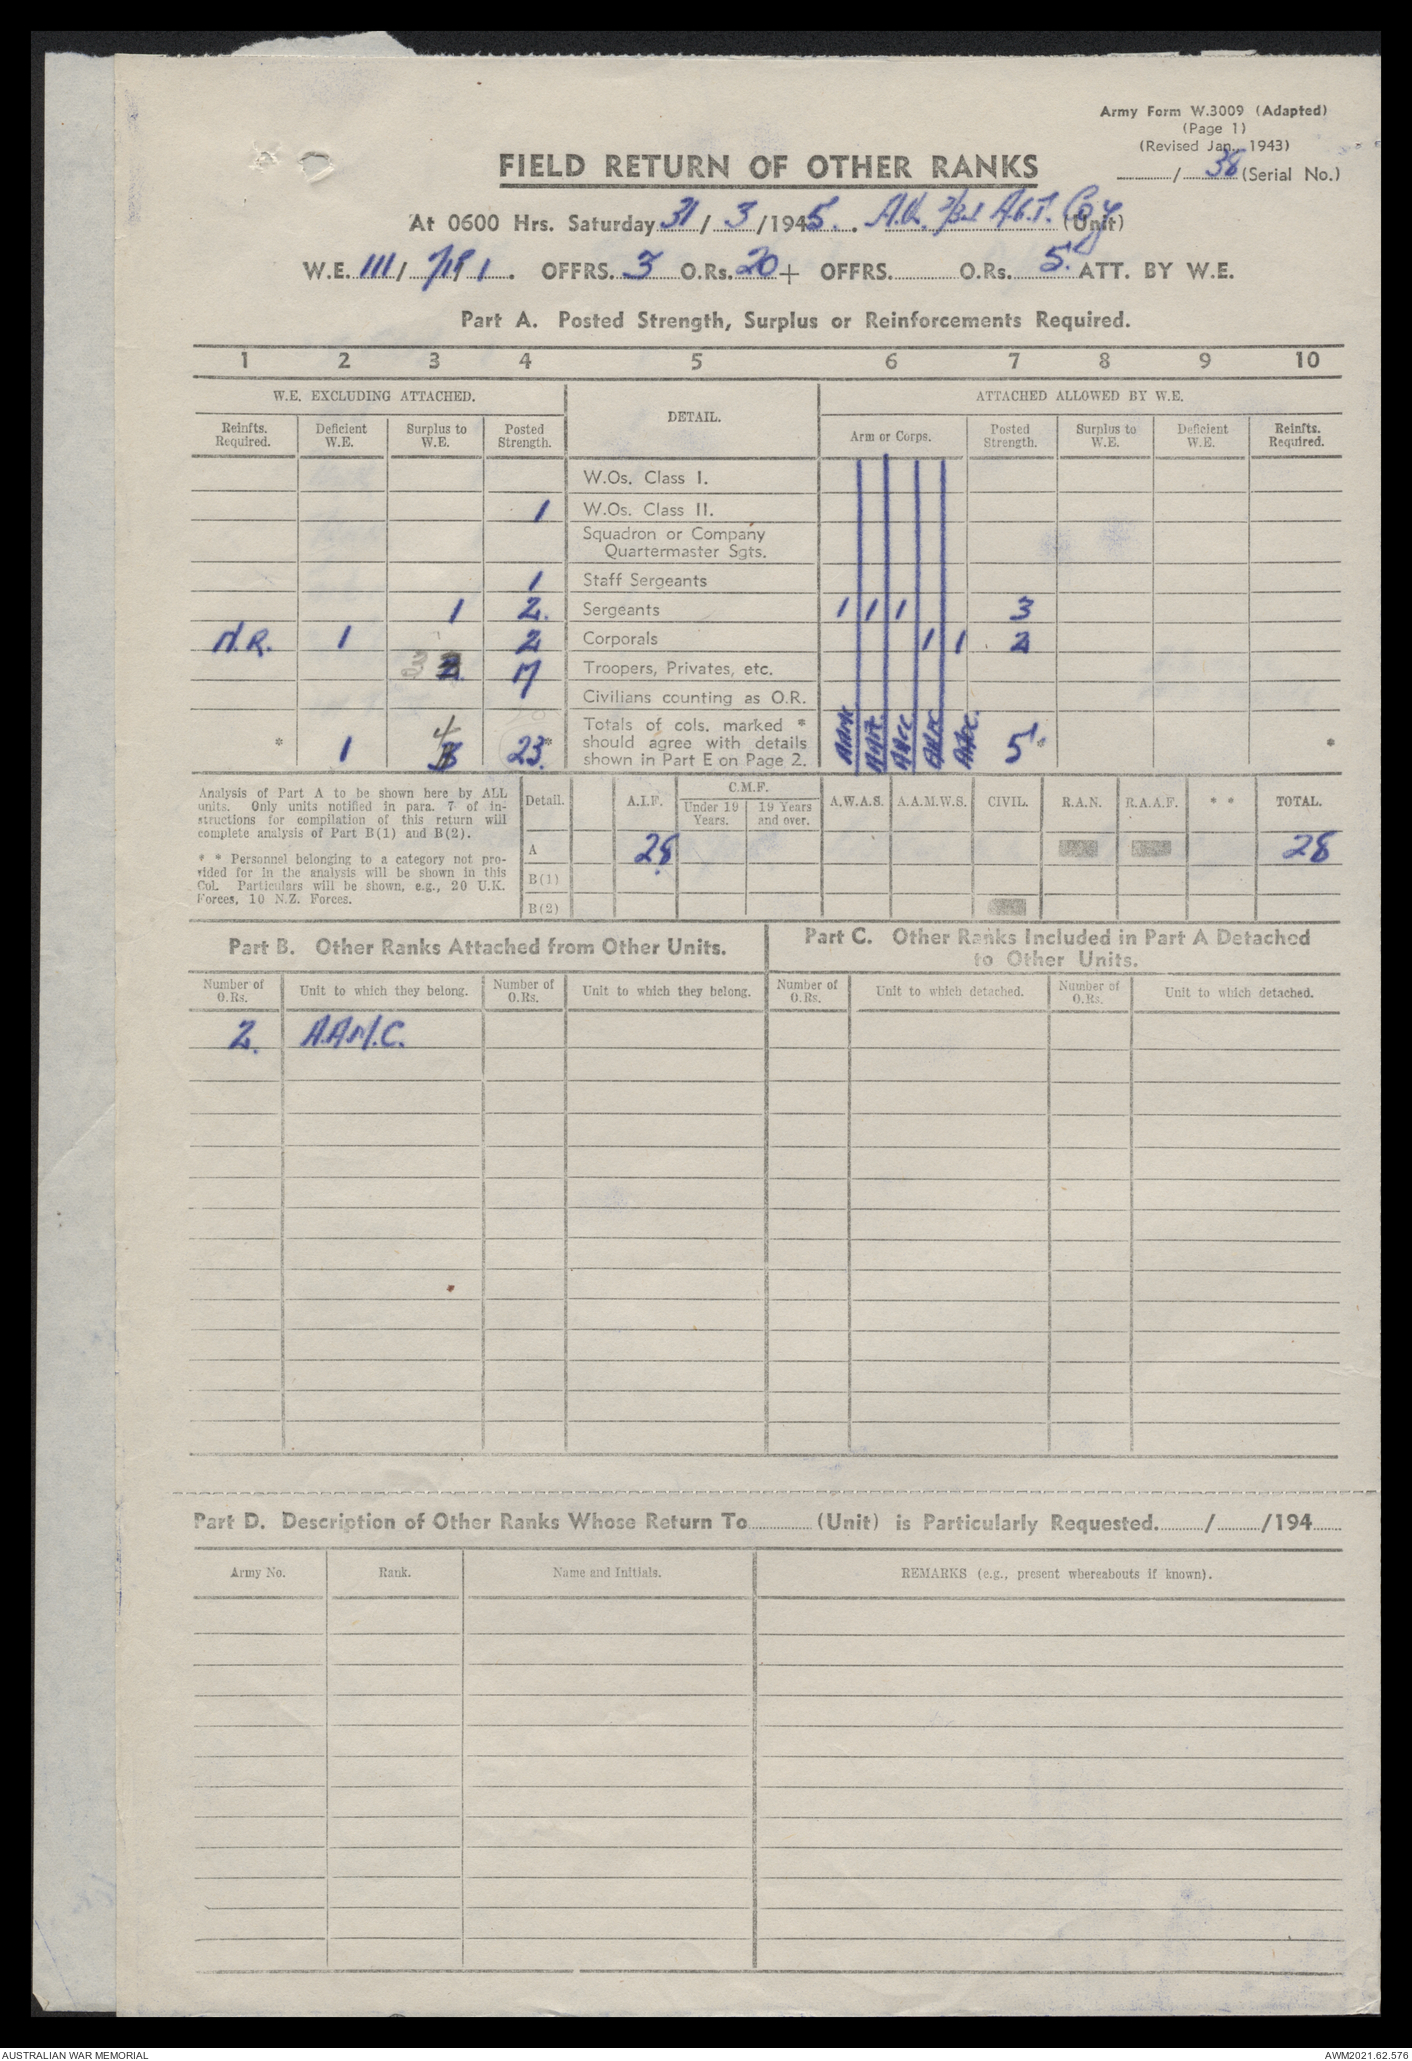 Army Form W.3009 (Adapted)
(Page 1)
(Revised Jan., 1943)
FIELD RETURN OF OTHER RANKS
............/............38 (Serial No.)
At 0600 Hrs. Saturday 31 / 3 /1945. A.G.T. Coy (Unit)
W.E. 111/ 1. OFFRS. 3 O.Rs. 20 + OFFRS............ O.Rs. 5. ATT. BY W.E.
Part A. Posted Strength, Surplus or Reinforcements Required.
1 2 3 4 5 6 7 8 9 10
W.E. EXCLUDING ATTACHED. DETAIL. ATTACHED ALLOWED BY W.E.
Reinfts. Required. Deficient W.E. Surplus to W.E. Posted Strength. Arm or Corps. Posted Strength. Surplus to W.E. Deficient W.E. Reinfts. Required.
W.Os. Class I.
1 W.Os. Class II.
Squadron or Company
Quartermaster Sgts.
1 Staff Sergeants
1 2. Sergeants 1 1 1 3
N.R. 1 2 Corporals 1 1 2
3 2 17 Troopers, Privates, etc.
Civilians counting as O.R.
Totals of cols. marked *
should agree with details
shown in Part E on Page 2.
* 1 4 3 23.* AAMC AACC 5* *
Analysis of Part A to be shown here by ALL
units. Only units notified in para. 7 of in-
structions for compilation of this return will
complete analysis of Part B(1) and B(2).
* * Personnel belonging to a category not pro-
vided for in the analysis will be shown in this
Col. Particulars will be shown, e.g., 20 U.K.
Forces, 10 N.Z. Forces.
Detail. A.I.F. C.M.F. Under 19 Years. 19 Years and over. A.W.A.S. A.A.M.W.S. CIVIL. R.A.N. R.A.A.F. * * TOTAL.
A 28. 28
B(1)
B(2)
Part B. Other Ranks Attached from Other Units.
Part C. Other Ranks Included in Part A Detached
to Other Units.
Number of O.Rs. Unit to which they belong. Number of O.Rs. Unit to which they belong. Number of O.Rs. Unit to which detached. Number of O.Rs. Unit to which detached.
2. A.A.M.C.
Part D. Description of Other Ranks Whose Return To............(Unit) is Particularly Requested........../........../194......
Army No. Rank. Name and Initials. REMARKS (e.g., present whereabouts if known).
AUSTRALIAN WAR MEMORIAL
AWM2021.62.576